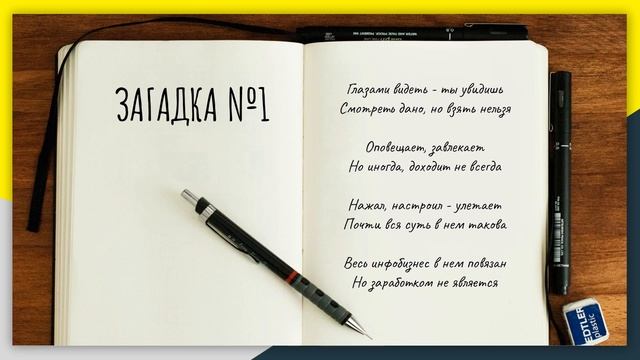 ЗАГАДКА №1
Глазами видеть - ты увидишь
Смотреть дано, но взять нельзя
Оповещает, завлекает
Но иногда, доходит не всегда
Нажал, настроил - улетает
Почти вся суть в нем такова
Весь инфобизнес в нем повязан
Но заработком не является
EDTLER
plastic